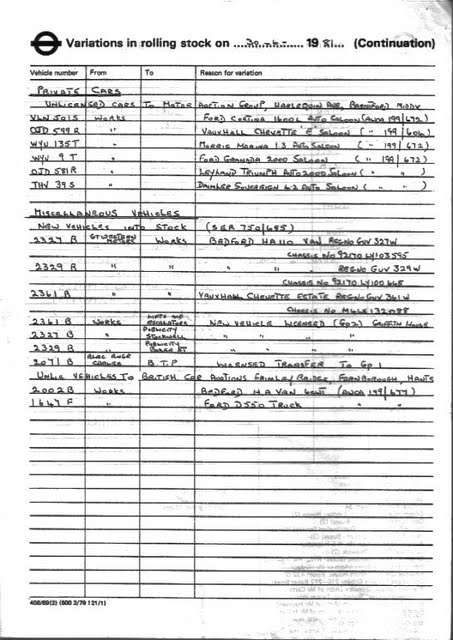 Variations in rolling stock on 19 81 (Continuation)
Vehicle number From To Reason for variation
PRIVATE CARS
UNLICENSED CARS TO MOTOR AUCTION GROUP, HARLEQUIN AVE, BRENTFORD MIDDX
VLN 501S WORKS FORD CORTINA 1600L AUTO SALOON (AUCA 199/672)
599R " VAUXHALL CHEVETTE E SALOON ( " 199/606)
WYU 135T " MORRIS MARINA 1.3 AUTO SALOON ( " 199/672)
WYU 9T " FORD GRANADA 2000 SALOON ( " 199/672)
OJD 581R " LEYLAND TRIUMPH AUTO 2000 SALOON ( " "
THV 39S " DAIMLER SOVEREIGN 4.2 AUTO SALOON ( " " )
MISCELLANEOUS VEHICLES
NEW VEHICLES INTO STOCK (SER 750/685)
2327 B WORKS BEDFORD HA110 VAN REGNO GUV 327W
CHASSIS NO 92170 LY103595
2329 B " " " " " REGNO GUV 329W
CHASSIS NO 92170 LY100668
2361 B " " VAUXHALL CHEVETTE ESTATE REGNO GUV 361W
CHASSIS NO 132088
2361 B WORKS LIFTS AND ESCALATORS NEW VEHICLE LICENSED (GO2) GRIFFIN HOUSE
2327 B " PUBLICITY STOCKWELL " " "
2329 B " PUBLICITY " " "
2071 B B.T.P LICENSED TRANSFER TO GP 1
UNLIC VEHICLES TO BRITISH CAR AUCTIONS FRIMLEY BRIDGE, FARNBOROUGH, HANTS
2002B WORKS BEDFORD HA VAN 6CWT (AUCA 199/677)
1647 F " FORD D550 TRUCK " "
408/69(2) (500 3/79 121/1)